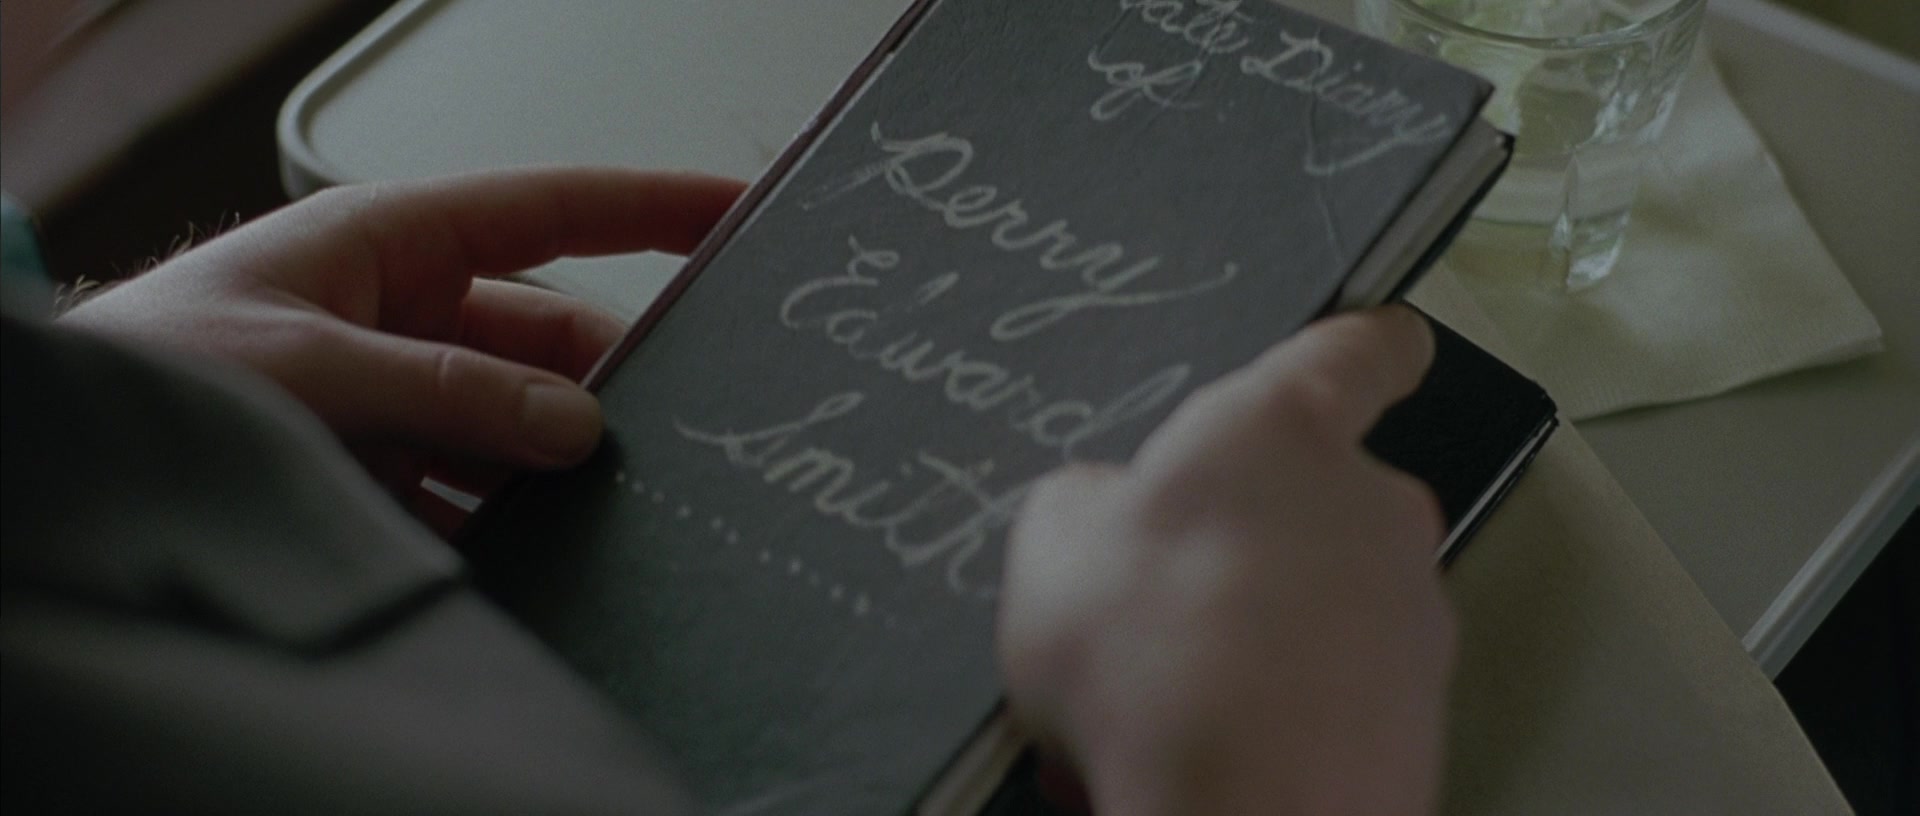 Diary
of
Perry
Edward
Smith